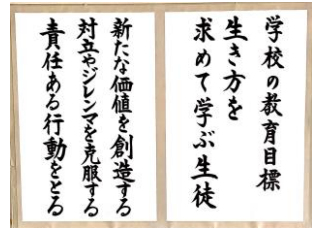 学校の教育目標
生き方を
求めて学ぶ生徒
新たな価値を創造する
対立やジレンマを克服する
責任ある行動をとる